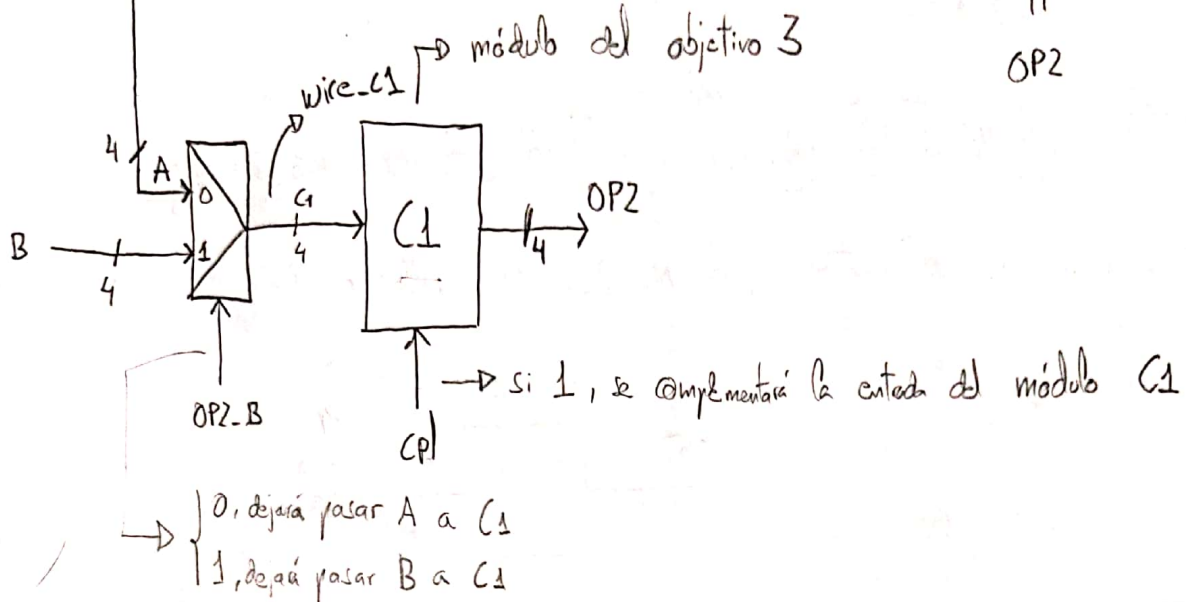 módulo del objetivo 3
OP2
wire_C1
4
A
0
C1
4
C1
OP2
4
B
4
1
OP2_B
cpl
si 1, se complementará la entrada del módulo C1
0, dejará pasar A a C1
1, dejará pasar B a C1